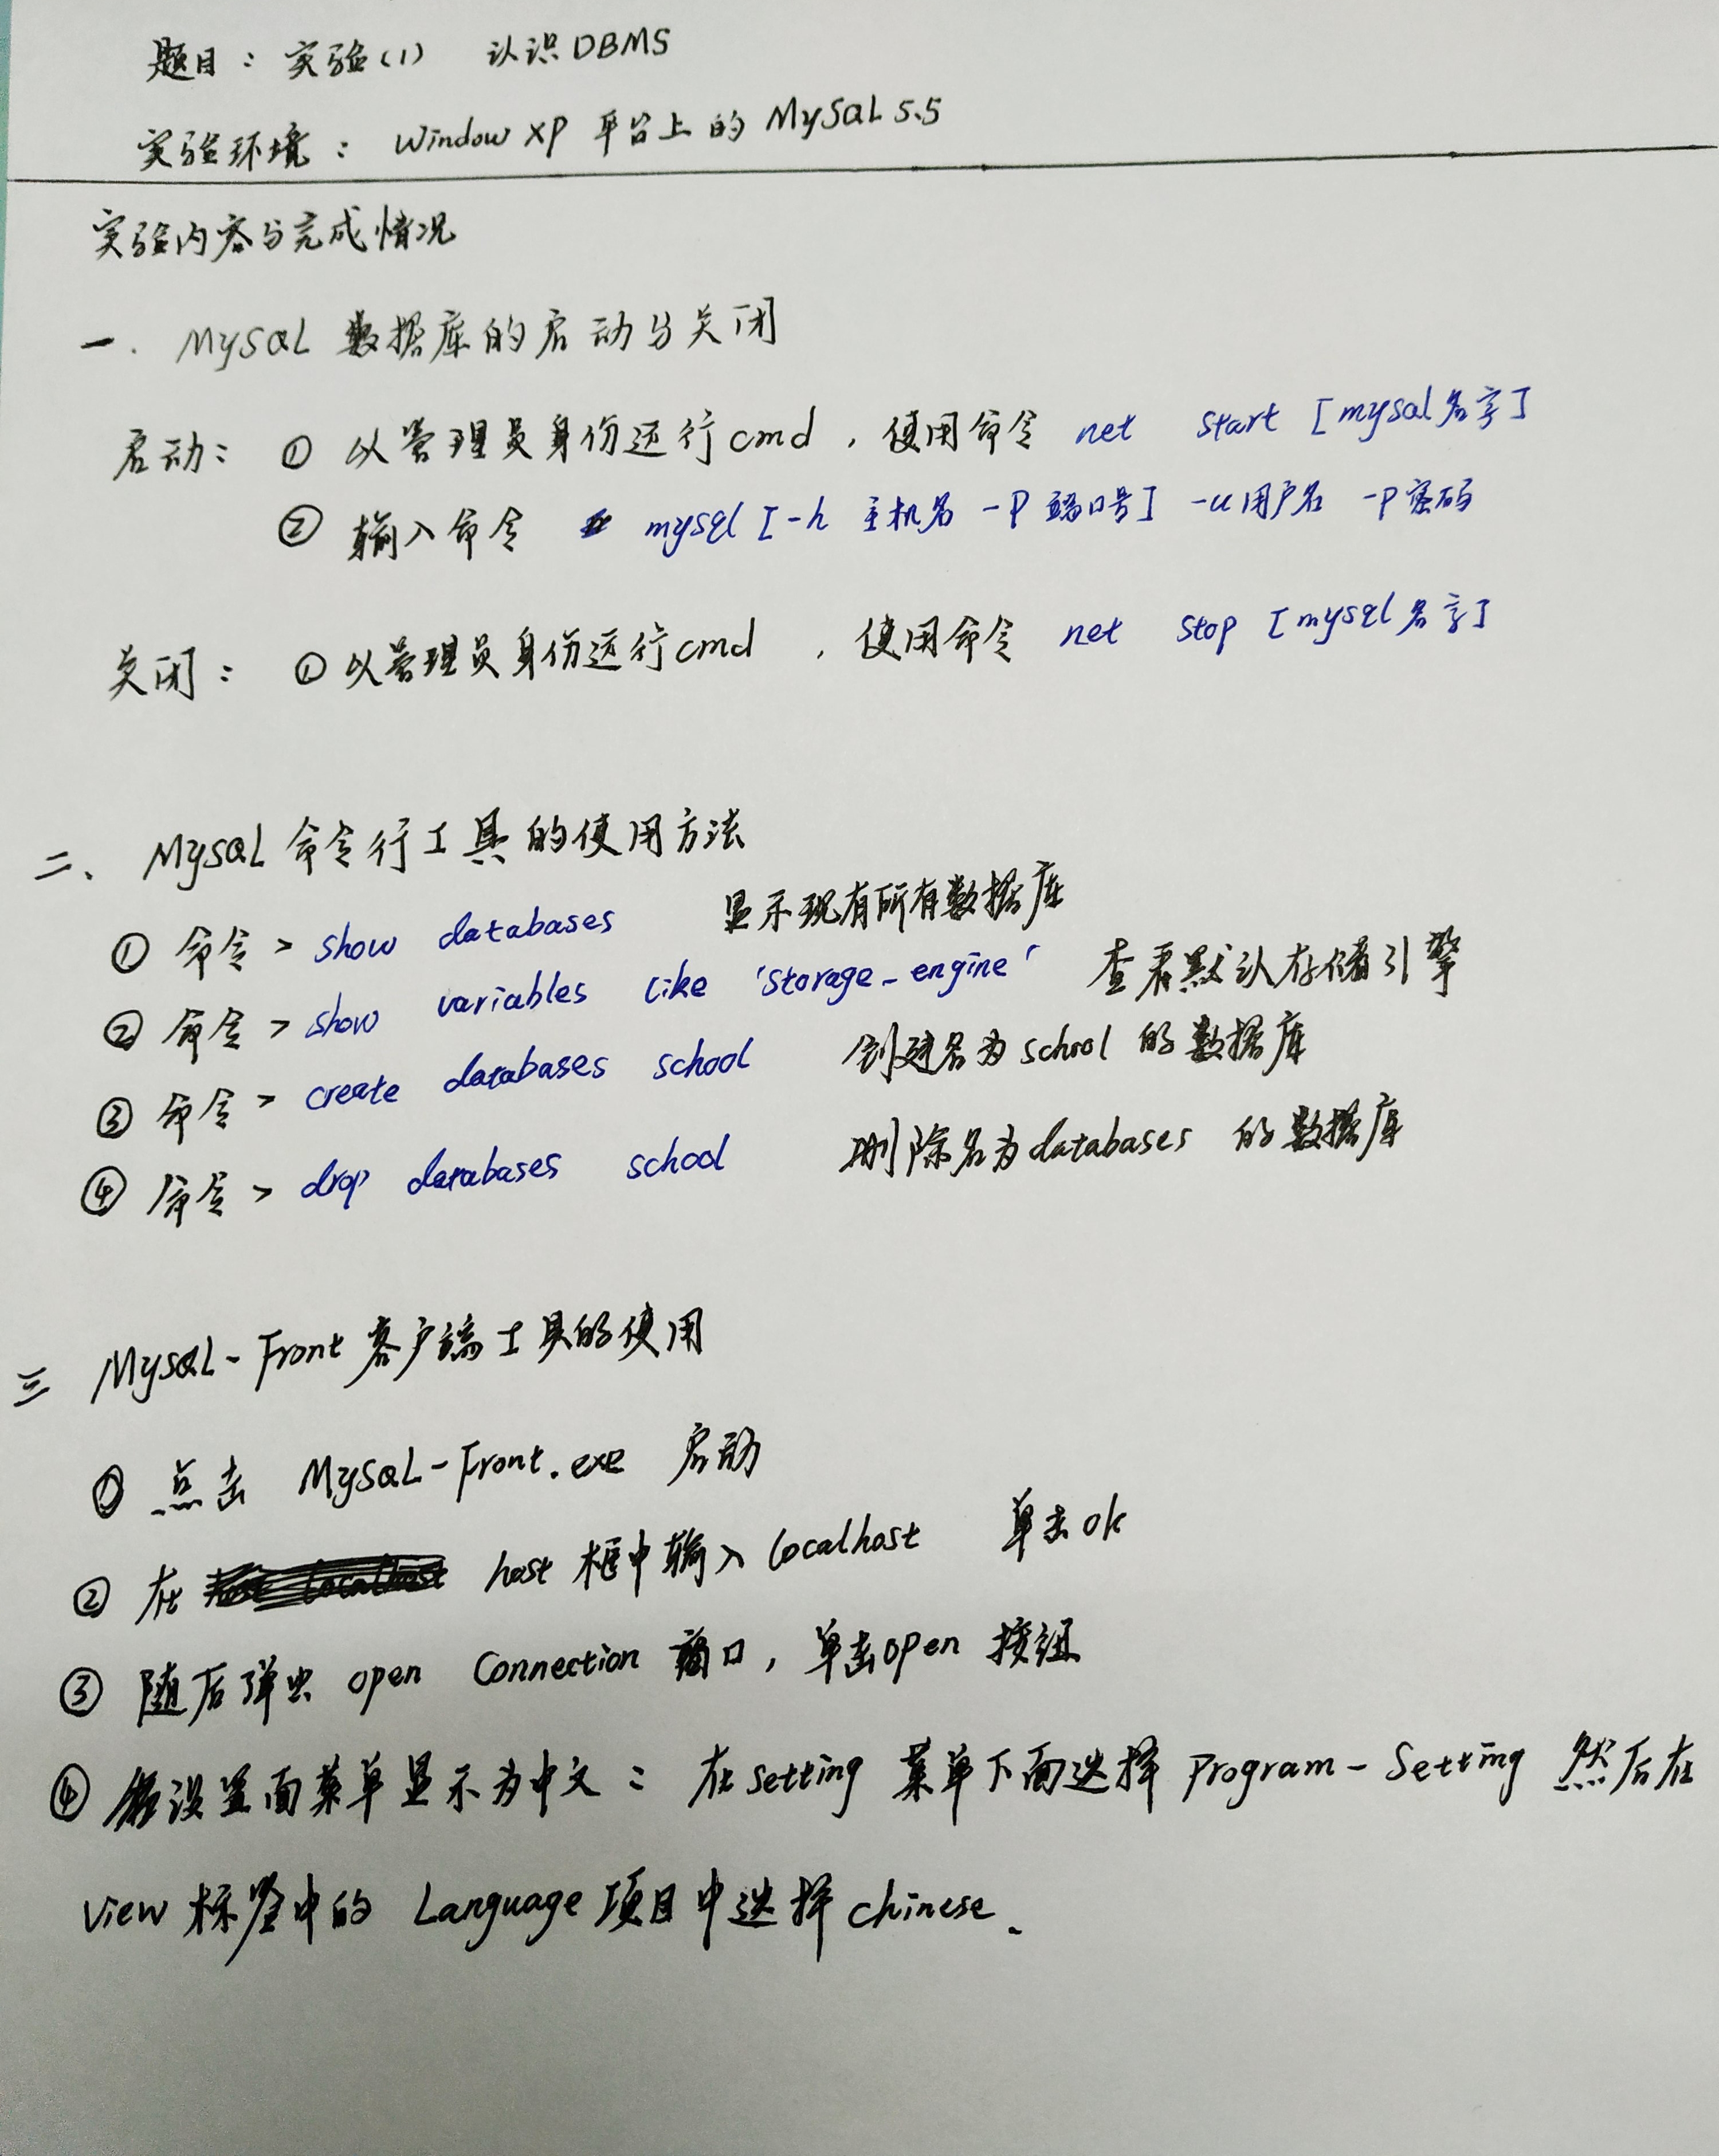 题目：实验(1) 认识DBMS
实验环境：Window XP 平台上的 MySQL 5.5
实验内容与完成情况
一. MySQL 数据库的启动与关闭
启动：① 以管理员身份运行cmd，使用命令 net start [mysql名字]
② 输入命令 mysql [-h 主机名 -P 端口号] -u用户名 -P密码
关闭：① 以管理员身份运行cmd，使用命令 net stop [mysql名字]
二、MysQL 命令行工具的使用方法
① 命令 > show databases 显示现有所有数据库
② 命令 > show variables like 'storage_engine' 查看默认存储引擎
③ 命令 > create databases school 创建名为school 的数据库
④ 命令 > drop databases school 删除名为databases 的数据库
三 MysQL-Front 客户端工具的使用
① 点击 MySQL-Front.exe 启动
② 在 host 框中输入 localhost 单击ok
③ 随后弹出 open Connection 窗口，单击open 按钮
④ 设置面菜单显示为中文：在setting 菜单下面选择 Program-Setting 然后在
View 标签中的 Language 项目中选择 chinese.